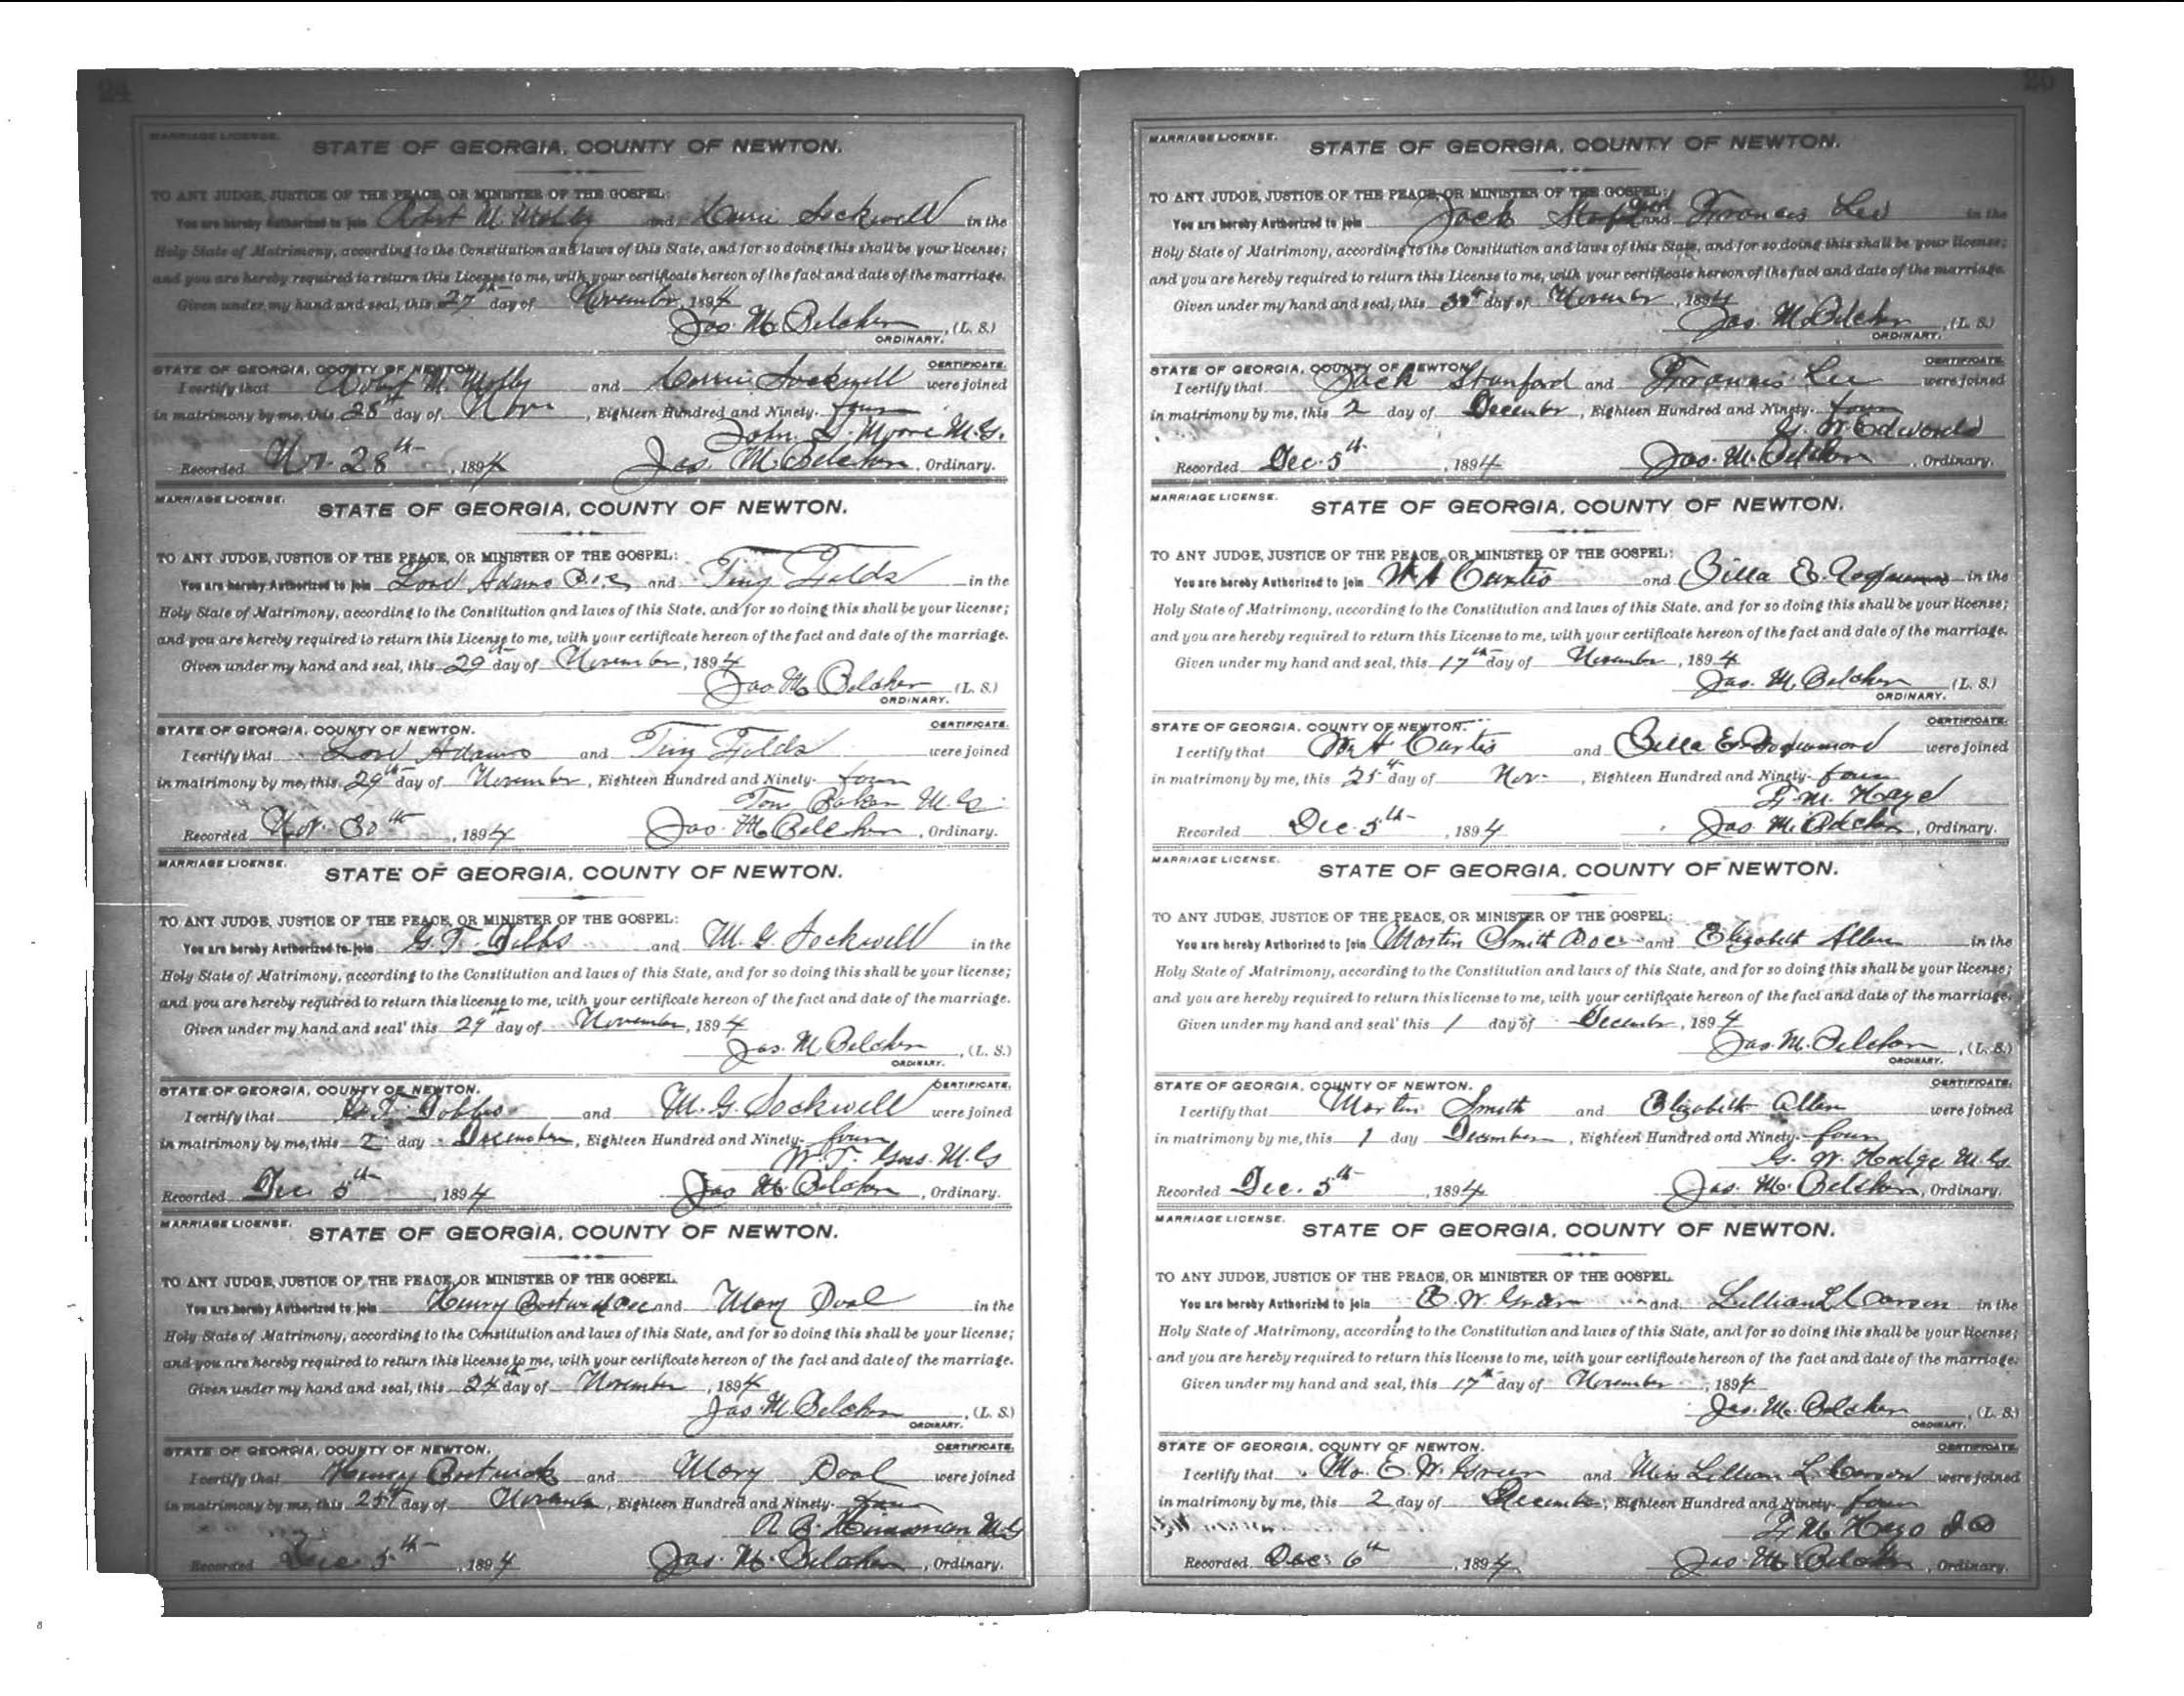 24
MARRIAGE LICENSE.
STATE OF GEORGIA, COUNTY OF NEWTON.
TO ANY JUDGE, JUSTICE OF THE PEACE, OR MINISTER OF THE GOSPEL:
You are hereby Authorized to join M. and Sockwell in the
Holy State of Matrimony, according to the Constitution and laws of this State, and for so doing this shall be your license;
and you are hereby required to return this License to me, with your certificate hereon of the fact and date of the marriage.
Given under my hand and seal, this 27th day of November, 1894
Jas. M. Belcher, (L. S.)
ORDINARY.
STATE OF GEORGIA, COUNTY OF NEWTON. CERTIFICATE.
I certify that M. and Sockwell were joined
in matrimony by me, this 28th day of Nov, Eighteen Hundred and Ninety-four
John Moore M.G.
Recorded 28th, 1894 Jas. M. Belcher, Ordinary.
MARRIAGE LICENSE.
STATE OF GEORGIA, COUNTY OF NEWTON.
TO ANY JUDGE, JUSTICE OF THE PEACE, OR MINISTER OF THE GOSPEL:
You are hereby Authorized to join Adams and Tiny in the
Holy State of Matrimony, according to the Constitution and laws of this State, and for so doing this shall be your license;
and you are hereby required to return this License to me, with your certificate hereon of the fact and date of the marriage.
Given under my hand and seal, this 29 day of November, 1894
Jas M. Belcher (L. S.)
ORDINARY.
STATE OF GEORGIA, COUNTY OF NEWTON. CERTIFICATE.
I certify that Adams and Tiny were joined
in matrimony by me, this 29th day of November, Eighteen Hundred and Ninety-four
Tom Baker M.G.
Recorded Nov. 30th, 1894 Jas. M. Belcher, Ordinary.
MARRIAGE LICENSE.
STATE OF GEORGIA, COUNTY OF NEWTON.
TO ANY JUDGE, JUSTICE OF THE PEACE, OR MINISTER OF THE GOSPEL:
You are hereby Authorized to join G. T. Dobbs and M. G. Sockwell in the
Holy State of Matrimony, according to the Constitution and laws of this State, and for so doing this shall be your license;
and you are hereby required to return this license to me, with your certificate hereon of the fact and date of the marriage.
Given under my hand and seal this 29th day of November, 1894
Jas. M. Belcher, (L. S.)
ORDINARY.
STATE OF GEORGIA, COUNTY OF NEWTON. CERTIFICATE.
I certify that G. T. Dobbs and M. G. Sockwell were joined
in matrimony by me, this 2 day December, Eighteen Hundred and Ninety-four
W. T. M.G
Recorded Dec 5th, 1894 Jas M. Belcher, Ordinary.
MARRIAGE LICENSE.
STATE OF GEORGIA, COUNTY OF NEWTON.
TO ANY JUDGE, JUSTICE OF THE PEACE, OR MINISTER OF THE GOSPEL
You are hereby Authorized to join Henry Bostwick and Mary in the
Holy State of Matrimony, according to the Constitution and laws of this State, and for so doing this shall be your license;
and you are hereby required to return this license to me, with your certificate hereon of the fact and date of the marriage.
Given under my hand and seal, this 24th day of November, 1894
Jas. M. Belcher, (L. S.)
ORDINARY.
STATE OF GEORGIA, COUNTY OF NEWTON. CERTIFICATE.
I certify that Henry Bostwick and Mary were joined
in matrimony by me, this 25th day of November, Eighteen Hundred and Ninety-four
B. M.G
Recorded Dec 5th, 1894 Jas. M. Belcher, Ordinary.
MARRIAGE LICENSE.
STATE OF GEORGIA, COUNTY OF NEWTON.
TO ANY JUDGE, JUSTICE OF THE PEACE, OR MINISTER OF THE GOSPEL:
You are hereby Authorized to join Jack and Francis Lee in the
Holy State of Matrimony, according to the Constitution and laws of this State, and for so doing this shall be your license;
and you are hereby required to return this License to me, with your certificate hereon of the fact and date of the marriage.
Given under my hand and seal, this 30th day of November, 1894
Jas. M. Belcher, (L. S.)
ORDINARY.
STATE OF GEORGIA, COUNTY OF NEWTON. CERTIFICATE.
I certify that Jack Stanford and Francis Lee were joined
in matrimony by me, this 2 day of December, Eighteen Hundred and Ninety-four
G. W. Edwards
Recorded Dec. 5th, 1894 Jas. M. Belcher, Ordinary.
MARRIAGE LICENSE.
STATE OF GEORGIA, COUNTY OF NEWTON.
TO ANY JUDGE, JUSTICE OF THE PEACE, OR MINISTER OF THE GOSPEL:
You are hereby Authorized to join Curtis and E. in the
Holy State of Matrimony, according to the Constitution and laws of this State, and for so doing this shall be your license;
and you are hereby required to return this License to me, with your certificate hereon of the fact and date of the marriage.
Given under my hand and seal, this 17th day of November, 1894
Jas. M. Belcher (L. S.)
ORDINARY.
STATE OF GEORGIA, COUNTY OF NEWTON. CERTIFICATE.
I certify that Curtis and E. were joined
in matrimony by me, this 25th day of Nov-, Eighteen Hundred and Ninety-four
Recorded Dec. 5th, 1894 Jas. M. Belcher, Ordinary.
MARRIAGE LICENSE.
STATE OF GEORGIA, COUNTY OF NEWTON.
TO ANY JUDGE, JUSTICE OF THE PEACE, OR MINISTER OF THE GOSPEL:
You are hereby Authorized to join Martin Smith and Elizabeth Allen in the
Holy State of Matrimony, according to the Constitution and laws of this State, and for so doing this shall be your license;
and you are hereby required to return this license to me, with your certificate hereon of the fact and date of the marriage.
Given under my hand and seal this 1 day of December, 1894
Jas. M. Belcher, (L. S.)
ORDINARY.
STATE OF GEORGIA, COUNTY OF NEWTON. CERTIFICATE.
I certify that Martin Smith and Elizabeth Allen were joined
in matrimony by me, this 1 day December, Eighteen Hundred and Ninety-four
G. W. Hodge M.G.
Recorded Dec. 5th, 1894 Jas. M. Belcher, Ordinary.
MARRIAGE LICENSE.
STATE OF GEORGIA, COUNTY OF NEWTON.
TO ANY JUDGE, JUSTICE OF THE PEACE, OR MINISTER OF THE GOSPEL
You are hereby Authorized to join E. W. and Lillian L. Carson in the
Holy State of Matrimony, according to the Constitution and laws of this State, and for so doing this shall be your license;
and you are hereby required to return this license to me, with your certificate hereon of the fact and date of the marriage.
Given under my hand and seal, this 17th day of November, 1894
Jas. M. Belcher, (L. S.)
ORDINARY.
STATE OF GEORGIA, COUNTY OF NEWTON. CERTIFICATE.
I certify that Mr. E. W. and Miss Lillian L. Carson were joined
in matrimony by me, this 2 day of December, Eighteen Hundred and Ninety-four
Recorded Dec 6th, 1894 Jas. M. Belcher, Ordinary.